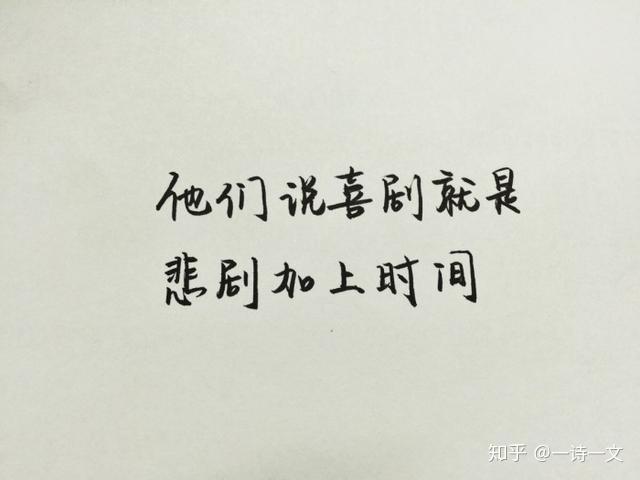 他们说喜剧就是
悲剧加上时间
知乎 @一诗一文